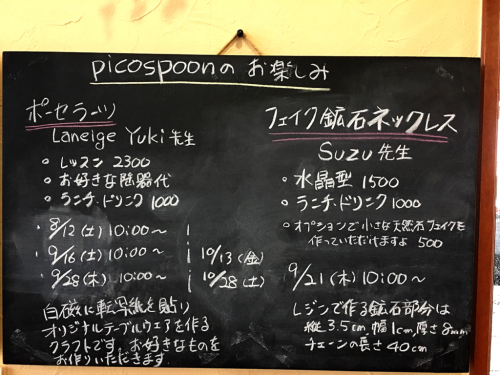 picospoonの お楽しみ
ポーセラーツ
Laneige Yuki先生
○ レッスン 2300
○ お好きな陶器代
○ ランチ、ドリンク 1000
8/12(土) 10:00〜
9/16(土) 10:00〜 10/13(金)
9/28(木) 10:00〜 10/28(土)
白磁に転写紙を貼り
オリジナルテーブルウエアを作る
クラフトです。お好きなものを
お作りいただきます。
フェイク鉱石ネックレス
Suzu先生
○ 水晶型 1500
○ ランチ、ドリンク 1000
○ オプションで小さな天然石フェイクも
作っていただけますよ 500
9/21(木) 10:00〜
レジンで作る鉱石部分は
縦3.5cm、幅1cm、厚さ8mm
チェーンの長さ40cm